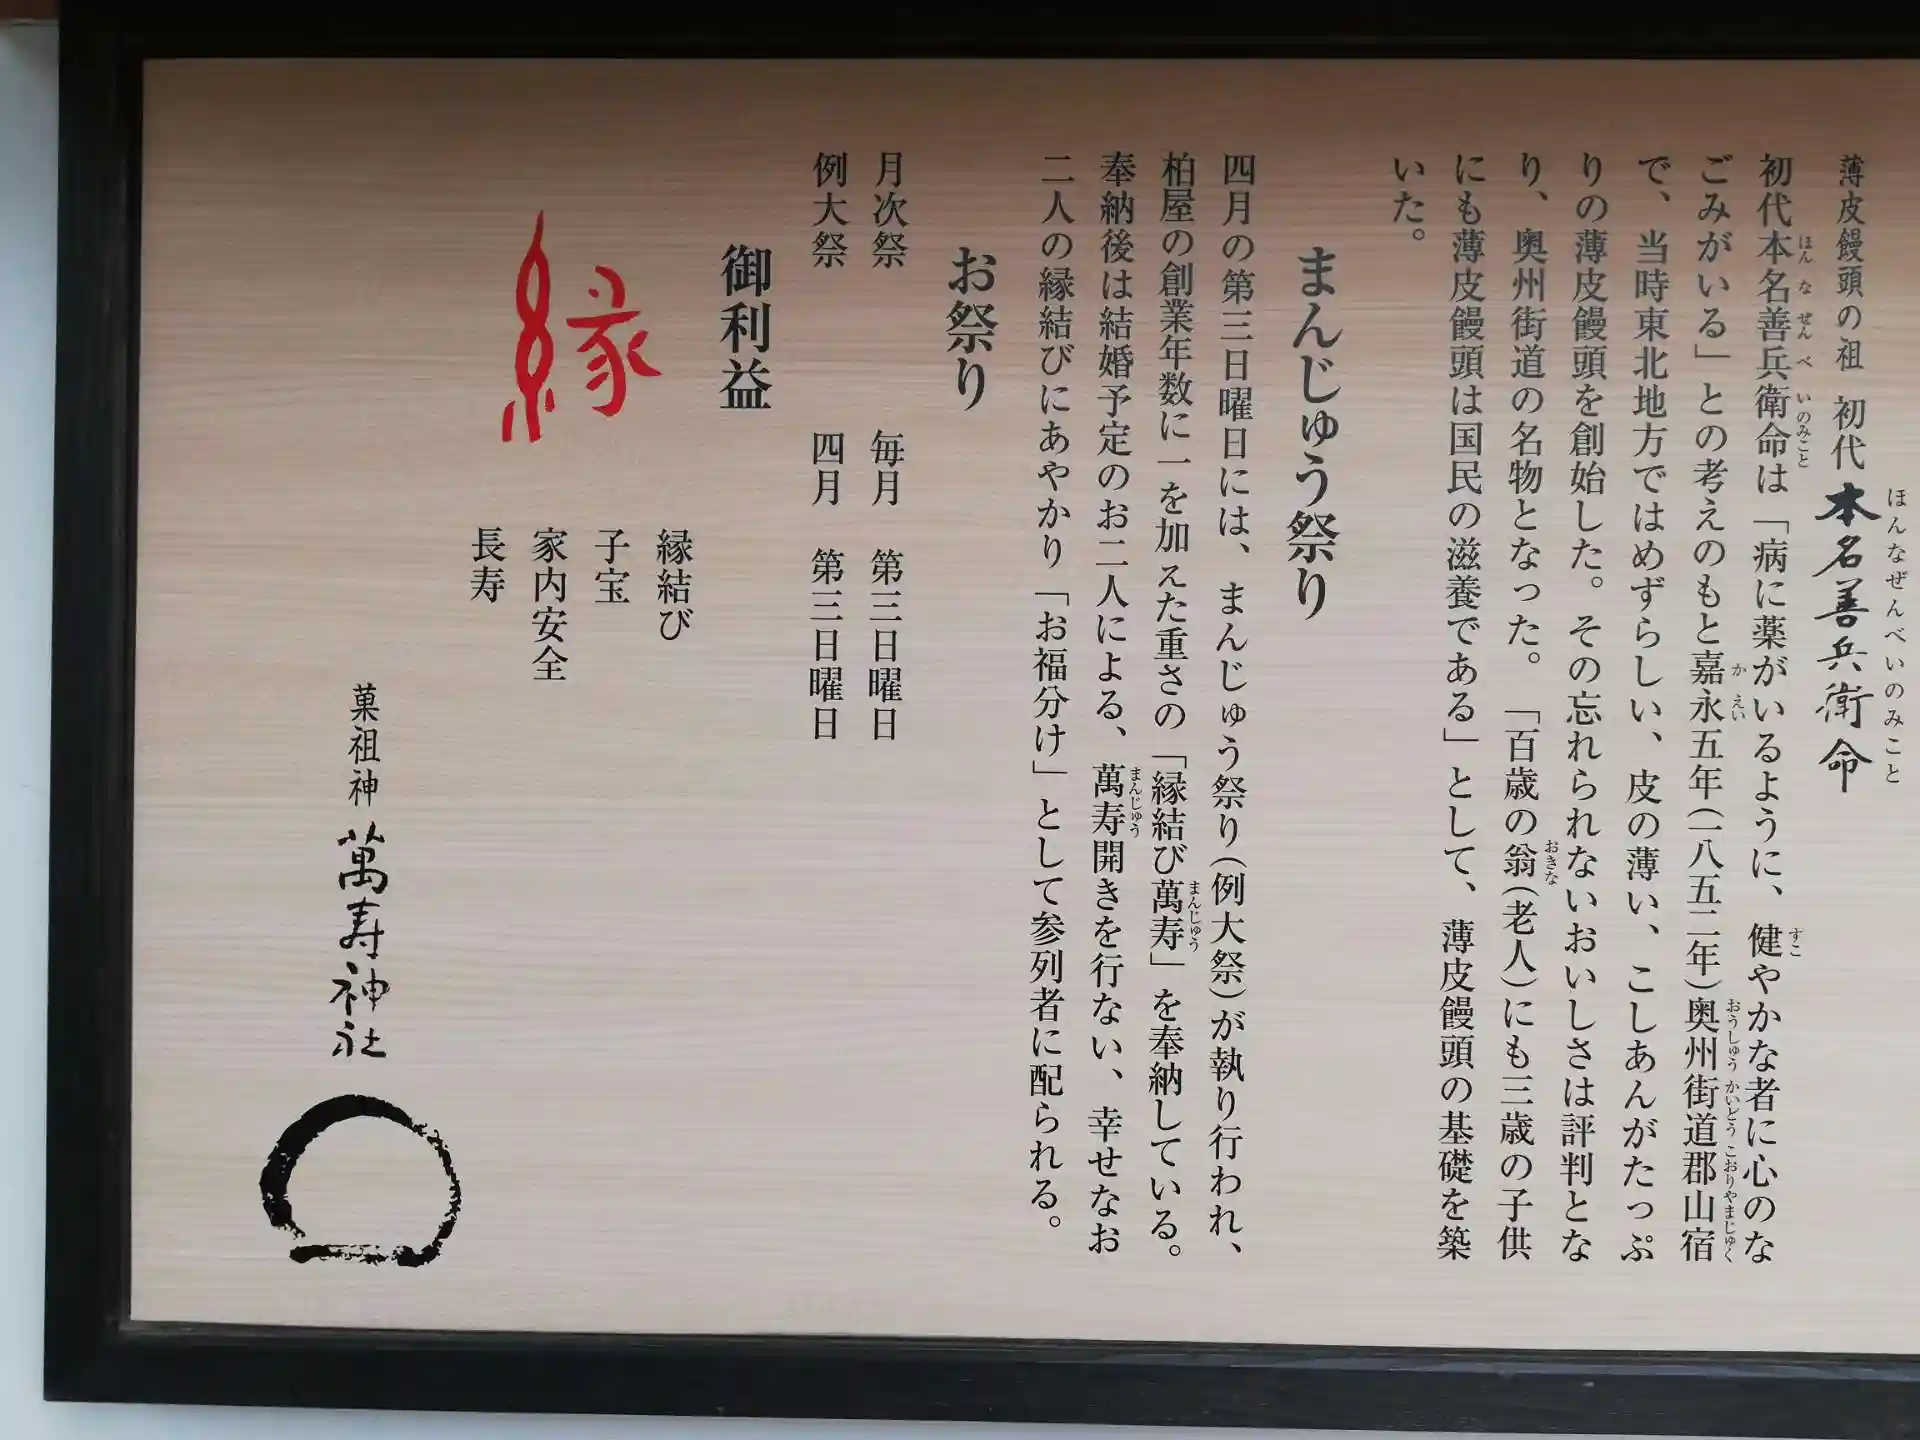 薄皮饅頭の祖 初代 本名善兵衛命
ほんなぜんべいのみこと
初代本名善兵衛命は「病に薬がいるように、健やかな者に心のな
ほん な ぜん べ いのみこと すこ
ごみがいる」との考えのもと嘉永五年(一八五二年)奥州街道郡山宿
か えい おうしゅう かいどう こおりやまじゅく
で、当時東北地方ではめずらしい、皮の薄い、こしあんがたっぷ
りの薄皮饅頭を創始した。その忘れられないおいしさは評判とな
り、奥州街道の名物となった。「百歳の翁(老人)にも三歳の子供
おきな
にも薄皮饅頭は国民の滋養である」として、薄皮饅頭の基礎を築
いた。
まんじゅう祭り
四月の第三日曜日には、まんじゅう祭り(例大祭)が執り行われ、
柏屋の創業年数に一を加えた重さの「縁結び萬寿」を奉納している。
まんじゅう
奉納後は結婚予定のお二人による、萬寿開きを行ない、幸せなお
まんじゅう
二人の縁結びにあやかり「お福分け」として参列者に配られる。
お祭り
月次祭 毎月 第三日曜日
例大祭 四月 第三日曜日
御利益
縁結び
子宝
家内安全
長寿
縁
菓祖神 萬寿神社